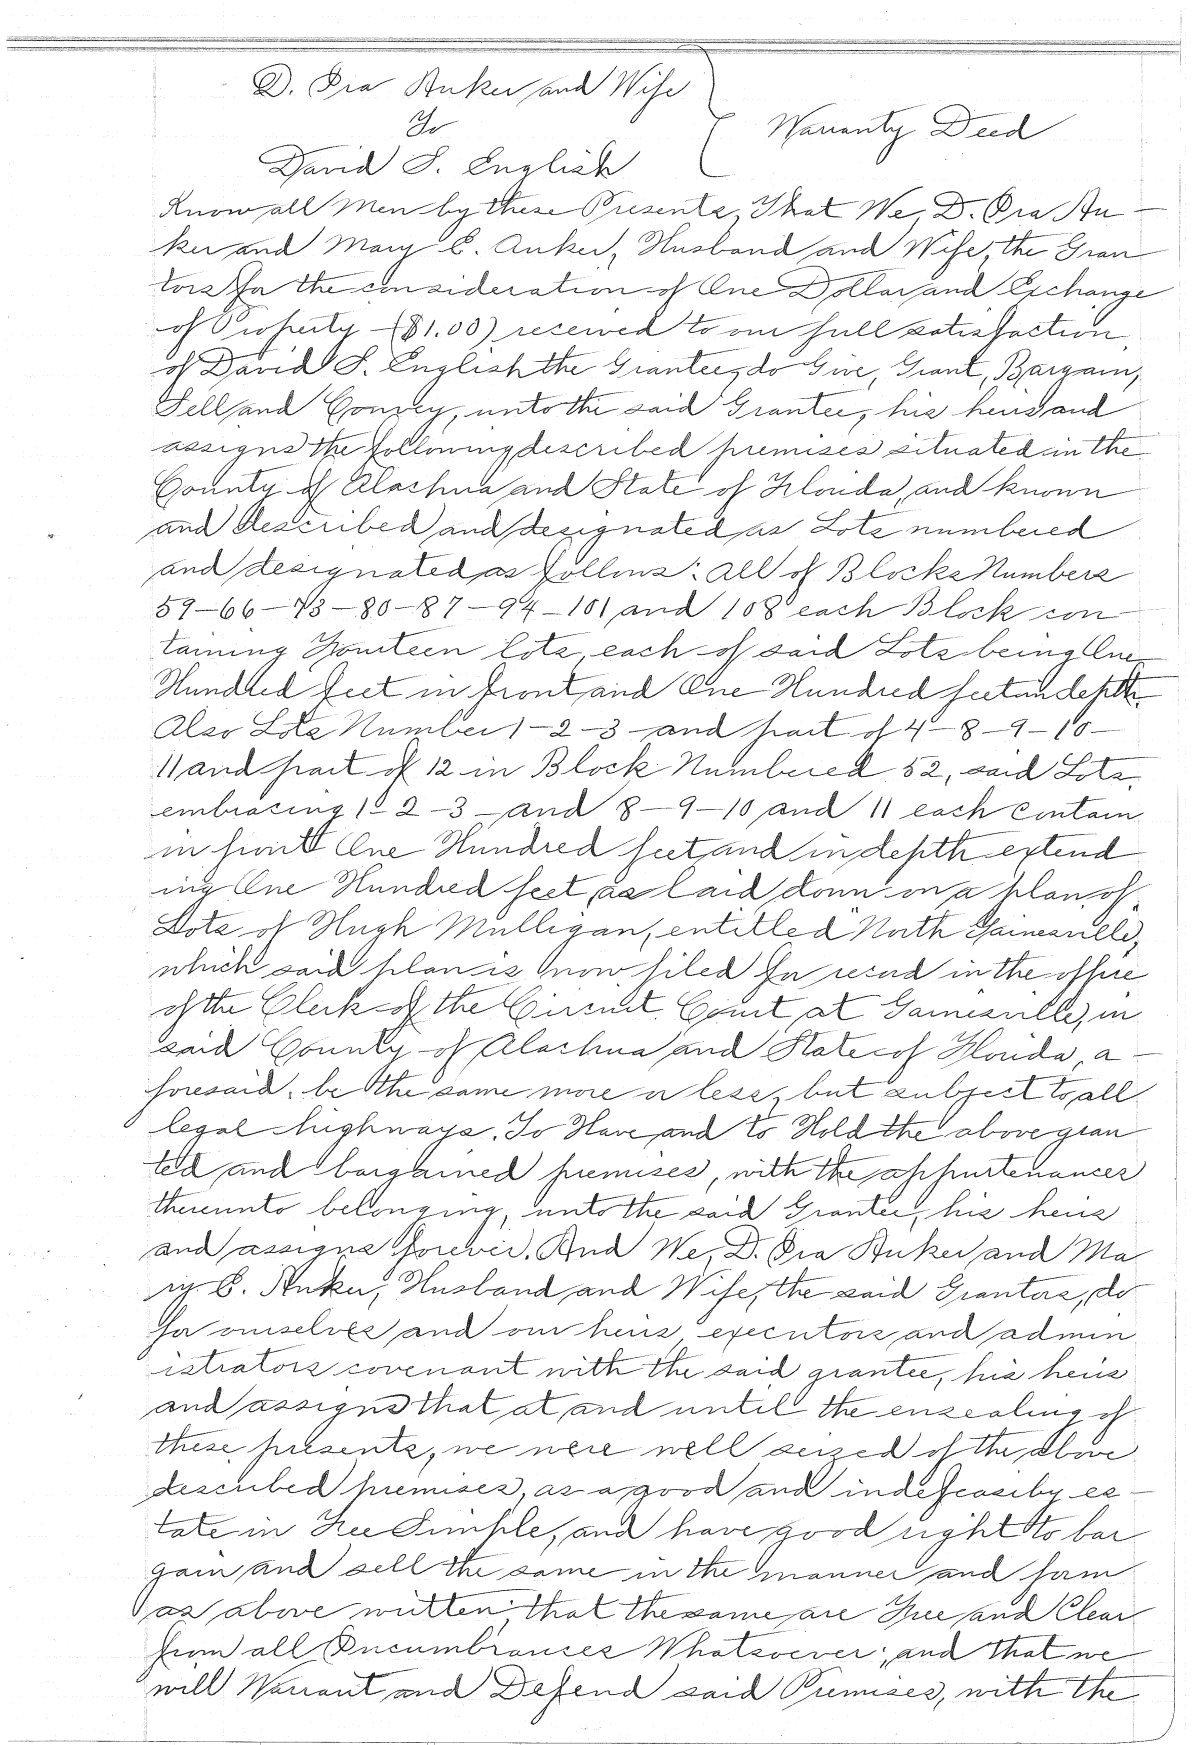 D. Ira Anker and Wife
To
Warranty Deed
David S. English
Know all Men by these Presents, That We, D. Ira An-
ker and Mary E. Anker, Husband and Wife, the Gran
tors for the consideration of One Dollar and Exchange
of Property - ($1.00) received to our full satisfaction,
of David S. English the Grantee, do Give, Grant, Bargain,
Sell and Convey, unto the said Grantee, his heirs and
assigns the following described premises situated in the
County of Alachua and State of Florida, and known
and described and designated as Lots numbered
and designated as follows: All of Blocks Numbers
59-66-73-80-87-94-101 and 108 each Block con-
taining Fourteen lots, each of said Lots being One
Hundred feet in front and One Hundred feet in depth.
Also Lots Number 1-2-3- and part of 4-8-9-10-
11 and part of 12 in Block Numbered 52, said Lots
embracing 1-2-3- and 8-9-10 and 11 each contain
in front One Hundred feet, and in depth extend
ing One Hundred feet, as laid down on a plan of
Lots of Hugh Mulligan, entitled "North Gainesville,
which said plan is now filed for record in the office
of the Clerk of the Circuit Court at Gainesville, in
said County of Alachua and State of Florida, a-
foresaid. be the same more or less, but subject to all
legal highways. To Have and to Hold the above gran
ted and bargained premises, with the appurtenances
thereunto belonging, unto the said Grantee, his heirs
and assigns forever. And We, D. Ira Anker and Ma
ry E. Anker, Husband and Wife, the said Grantors, do
for ourselves and our heirs, executors and admin
istrators covenant with the said grantee, his heirs
and assigns that at and until the ensealing of
these presents, we were well seized of the above
described premises, as a good and indefeasiby es-
tate in Fee Simple, and have good right to bar
gain and sell the same in the manner and form
as above written; that the same are Free and Clear
from all Encumbrances Whatsoever; and that we
will Warrant and Defend said Premises, with the